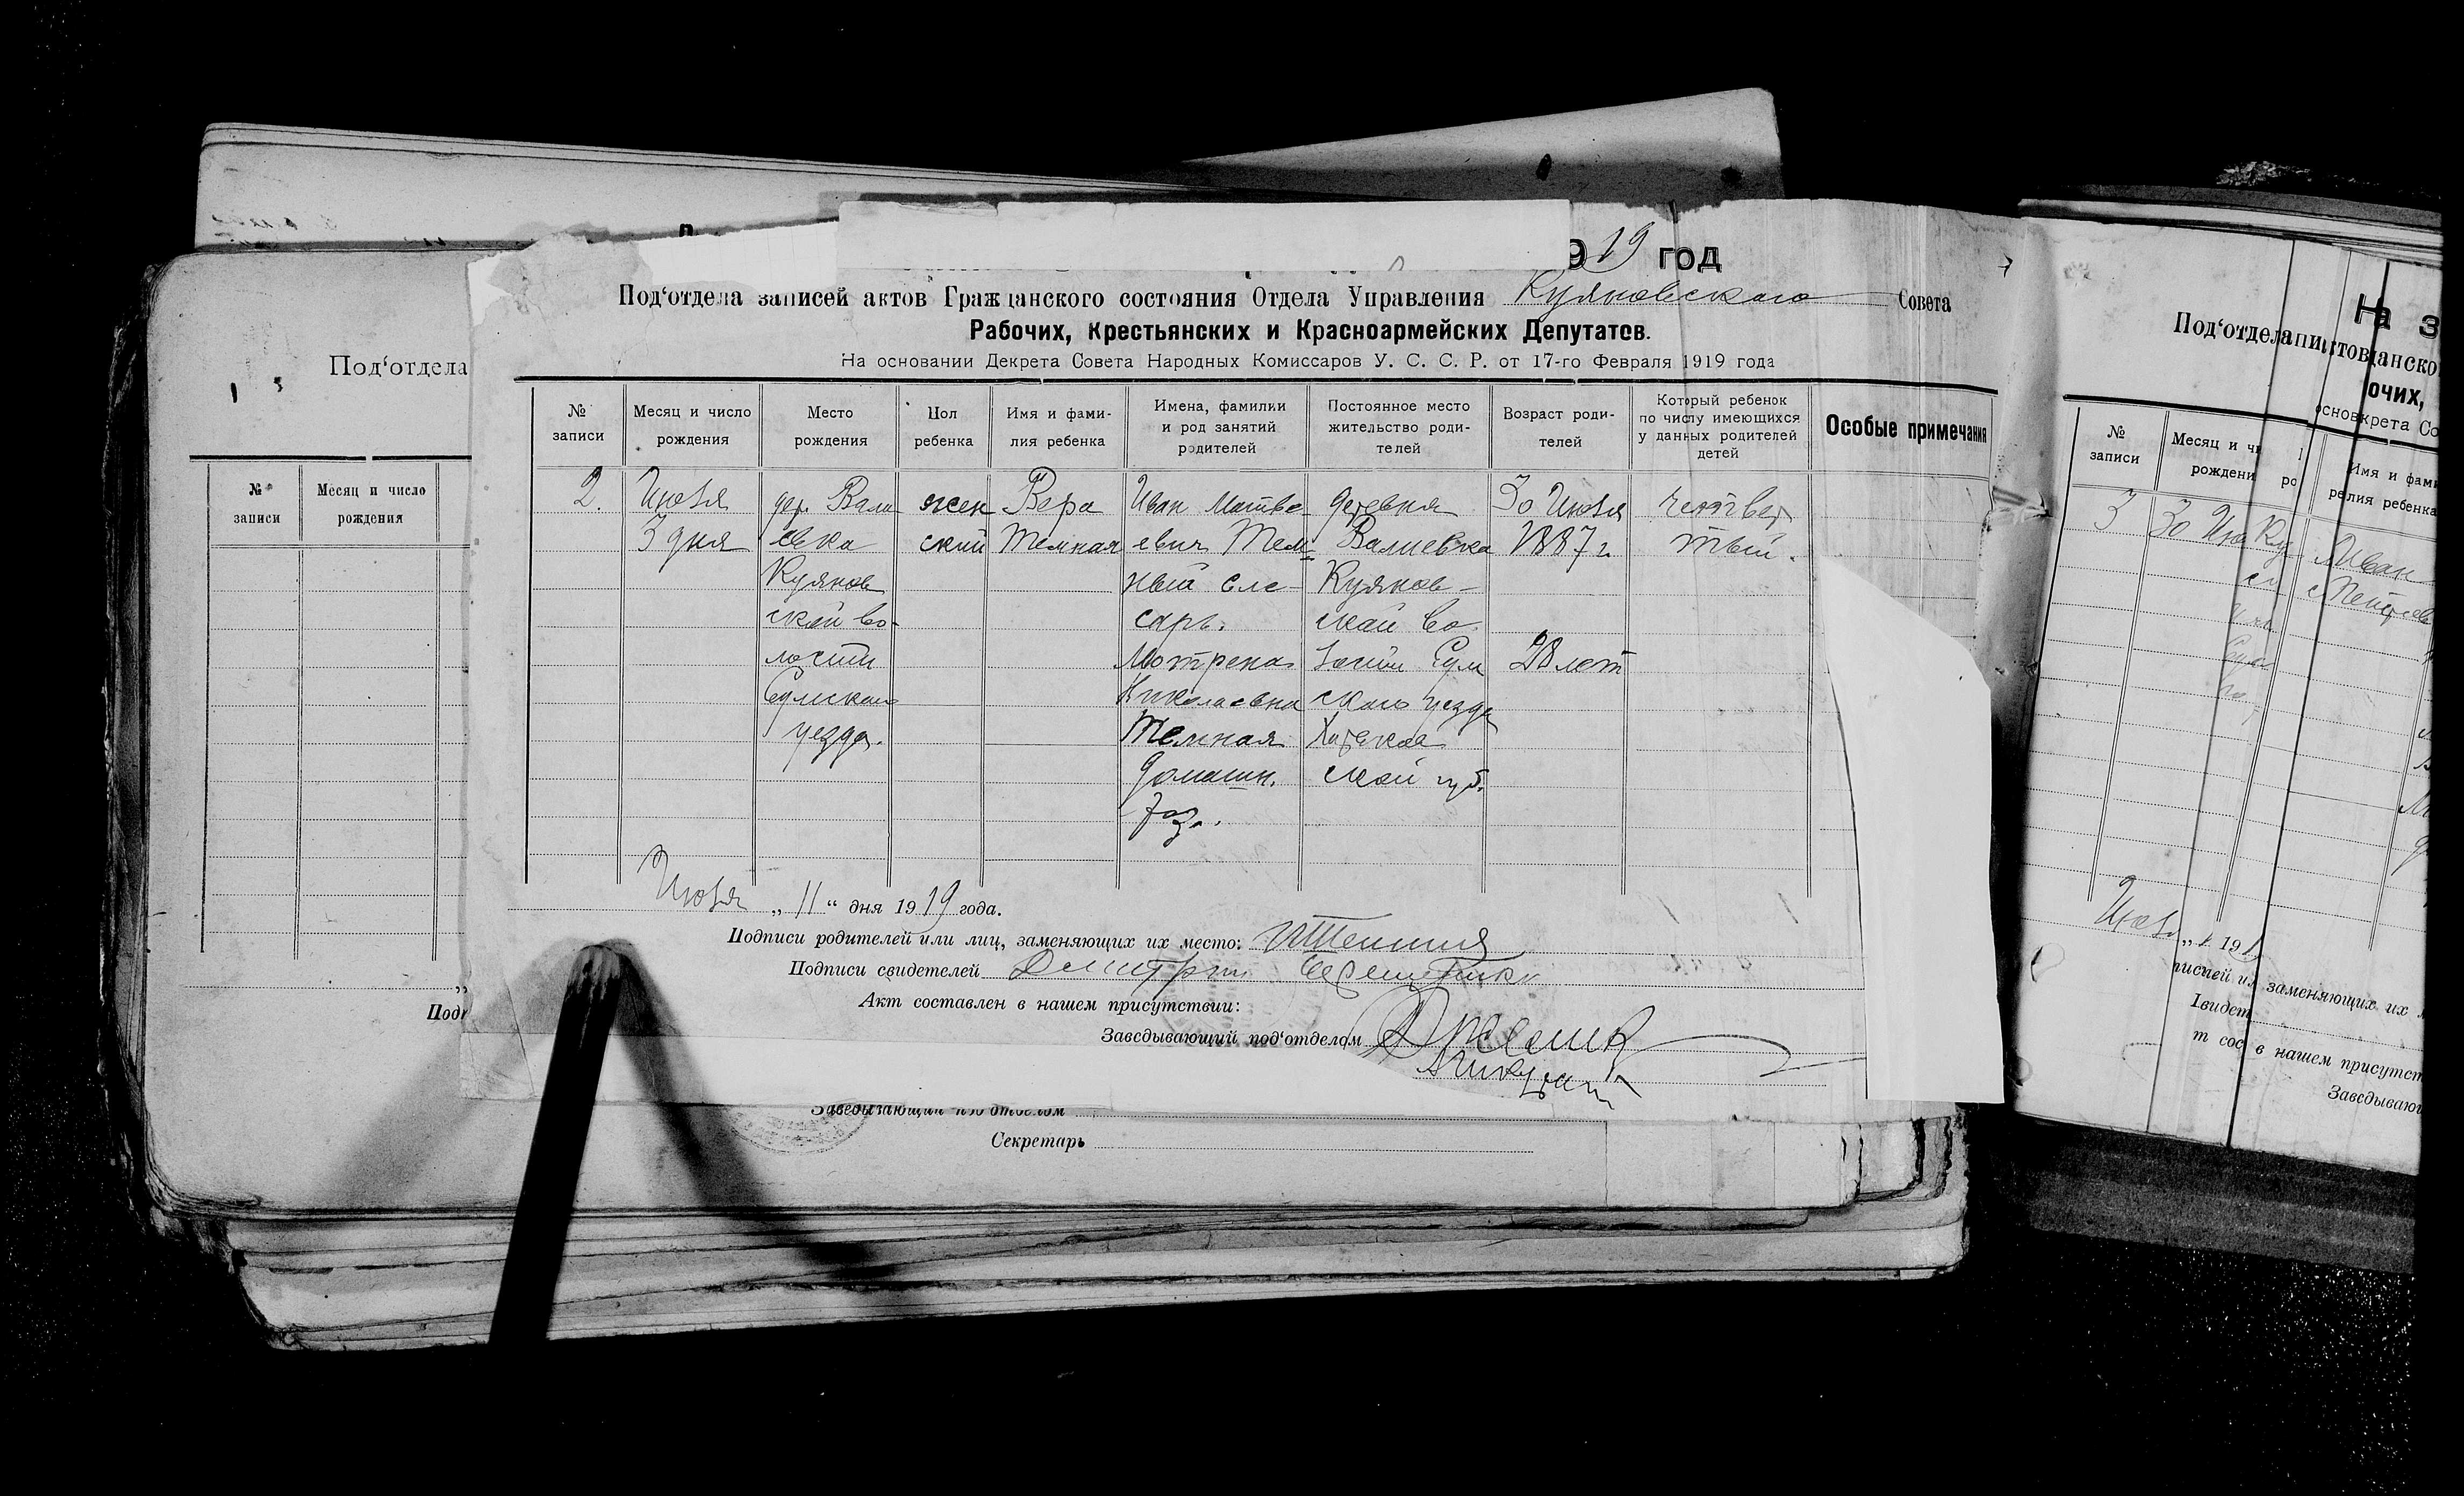 19 19 год
Под‘отдела записей актов Гражданского состояния Отдела Управления Куяновского Совета
Рабочих, Крестьянских и Красноармейских Депутатов.
На основании Декрета Совета Народных Комиссаров У. С. С. Р. от 17-го Февраля 1919 года
№ записи
Месяц и число рождения
Место рождения
Пол ребенка
Имя и фами-
лия ребенка
Имена, фамилии
и род занятий
родителей
Постоянное место
жительство роди-
телей
Возраст роди-
телей
Который ребенок
по числу имеющихся
у данных родителей
детей
Особые примечания
2.
Июля
3 дня
дер. Вали
евка
Куянов
ской во-
лости
Сумского
уезда.
жен
ский
Вера
Темная
Иван Матве-
евич Тем-
ный сле-
сарь.
Мотрена
Николаевна
Темная
домашн.
хоз.
деревня
Валиевка
Куянов-
ской во
лости Сум
ского уезда
Харьков
ской губ.
30 Июля
1887 г.
28 лет
четвер
тый.
Июля „11“ дня 1919 года.
Подписи родителей или лиц, заменяющих их место:
Подписи свидетелей Дмитрий
Акт составлен в нашем присутствии:
Заведывающий под‘отделом
Заведывающий под‘отделом
Секретарь
Под‘отдела
№ записи
Месяц и число
рождения
На
Под‘отдела
очих,
№
записи
Месяц и
рождени
Имя и фами
лия ребенка
3
30
Иван
Июля
заменяющих их
в нашем присутст
Заведываю